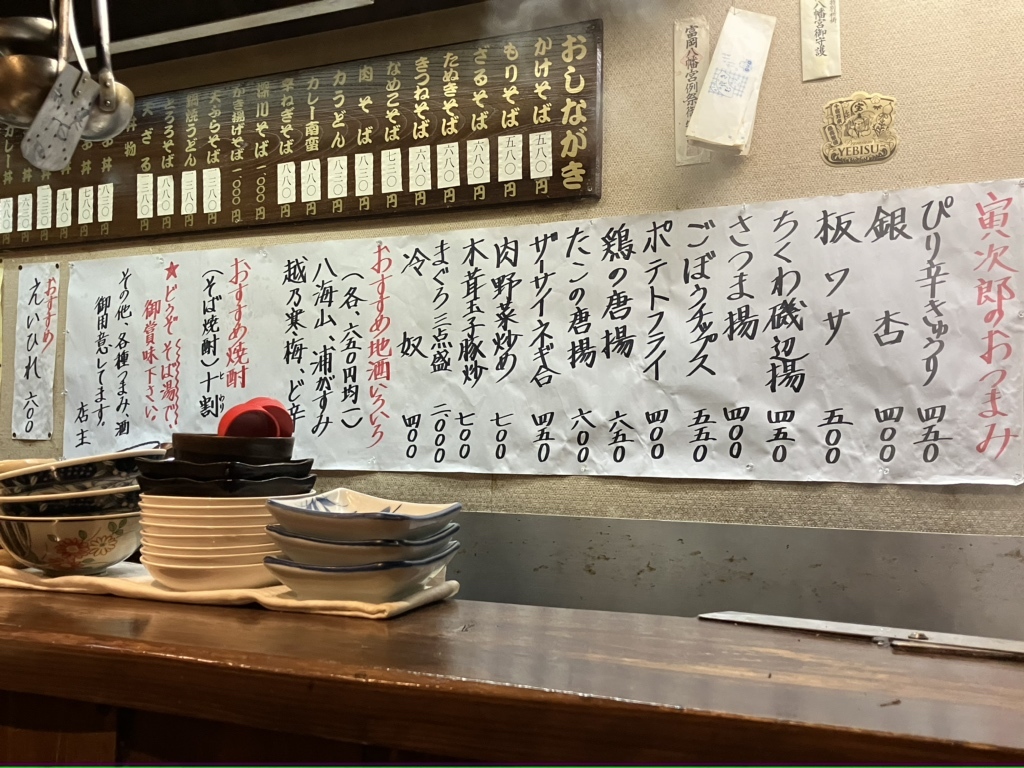 おしながき
かけそば 五八〇円
もりそば 五八〇円
ざるそば 六八〇円
たぬきそば 六八〇円
きつねそば 六八〇円
なめこそば
肉そば 八八〇円
力うどん 八三〇円
カレー南蛮 八八〇円
辛ねぎそば 八八〇円
深川そば 一、〇〇〇円
かき揚げそば 一、〇〇〇円
天ぷらそば
鍋焼うどん
とろろそば
天ざる
丼物
カレー丼
富岡八幡宮例祭
八幡宮御守護
YEBISU
寅次郎のおつまみ
ぴり辛きゅうり 四五〇
銀杏 四〇〇
板ワサ 五〇〇
ちくわ磯辺揚 四五〇
さつま揚 四〇〇
ごぼうチップス 五五〇
ポテトフライ 四〇〇
鶏の唐揚 六五〇
たこの唐揚 六〇〇
ザーサイネギ合 四五〇
肉野菜炒め 七〇〇
木茸玉子豚炒 七〇〇
まぐろ三点盛 二、〇〇〇
冷奴 四〇〇
おすすめ地酒いろいろ
（各、六五〇円均一）
八海山、浦がすみ
越乃寒梅、ど辛
おすすめ焼酎
（そば焼酎）十割
★どうぞそば湯で、
御賞味下さい、
その他、各種つまみ、酒
御用意してます。
店主
おすすめ
えいひれ 六〇〇